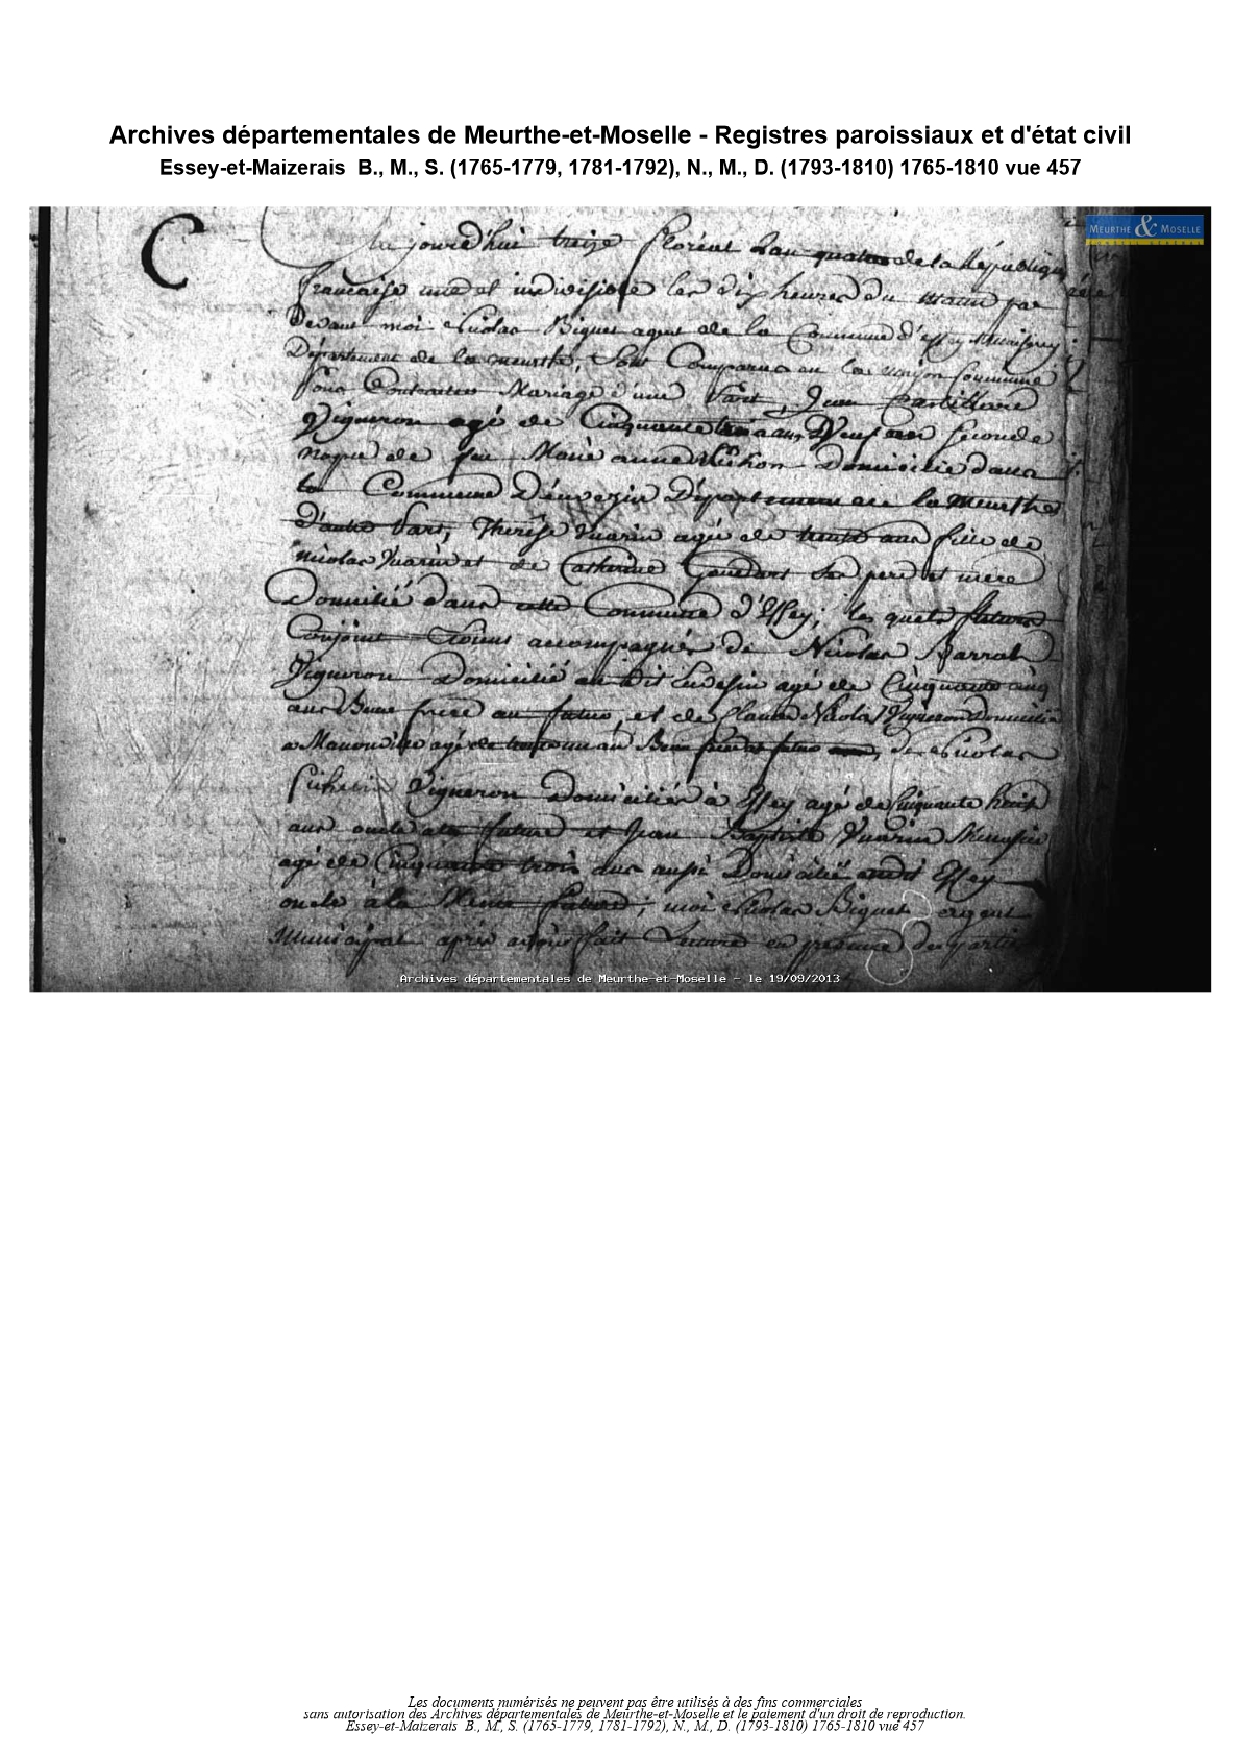 Archives départementales de Meurthe-et-Moselle - Registres paroissiaux et d'état civil
Essey-et-Maizerais B., M., S. (1765-1779, 1781-1792), N., M., D. (1793-1810) 1765-1810 vue 457
MEURTHE & MOSELLE
C
Aujourd'hui treize floréal l'an quatre de la République
française une et indivisible les dix heures du matin par
devant moi Nicolas Biquet agent de la Commune d'Essey
Département de la meurthe, sont Comparus en la maison Commune
pour Contracter Mariage d'une part, Jean
Vigneron agé de Cinquante ans Veuf en seconde
noque de feu Marie anne Domicilié dans
la Commune D'euvezin Département de la Meurthe
D'autre part, Therese Vuarin agée de trente ans fille de
nicolas Vuarin et de Catherine ses pere et mere
Domicilié dans cette Commune d'Essey; les quels futurs
Conjoint accompagnés de Nicolas Barrat
Vigneron Domicilié au dit Euvesin agé de Cinquante cinq
ans Beau frere au futur, et de Claude Nicolas Vigneron Domicilié
a agé de ans Beau futur de Nicolas
Vigneron Domiciliés à Essey agé de Cinquante huit
ans oncle a la future et Jean Baptiste Vuarin
agé de Cinquante trois ans aussi Domicilié audit Essey
oncle à la même future; moi Nicolas Biquet agent
Municipal après avoir fait Lecture en présence des parties
Archives départementales de Meurthe-et-Moselle - le 19/09/2013
Les documents numérisés ne peuvent pas être utilisés à des fins commerciales
sans autorisation des Archives départementales de Meurthe-et-Moselle et le paiement d'un droit de reproduction.
Essey-et-Maizerais B., M., S. (1765-1779, 1781-1792), N., M., D. (1793-1810) 1765-1810 vue 457